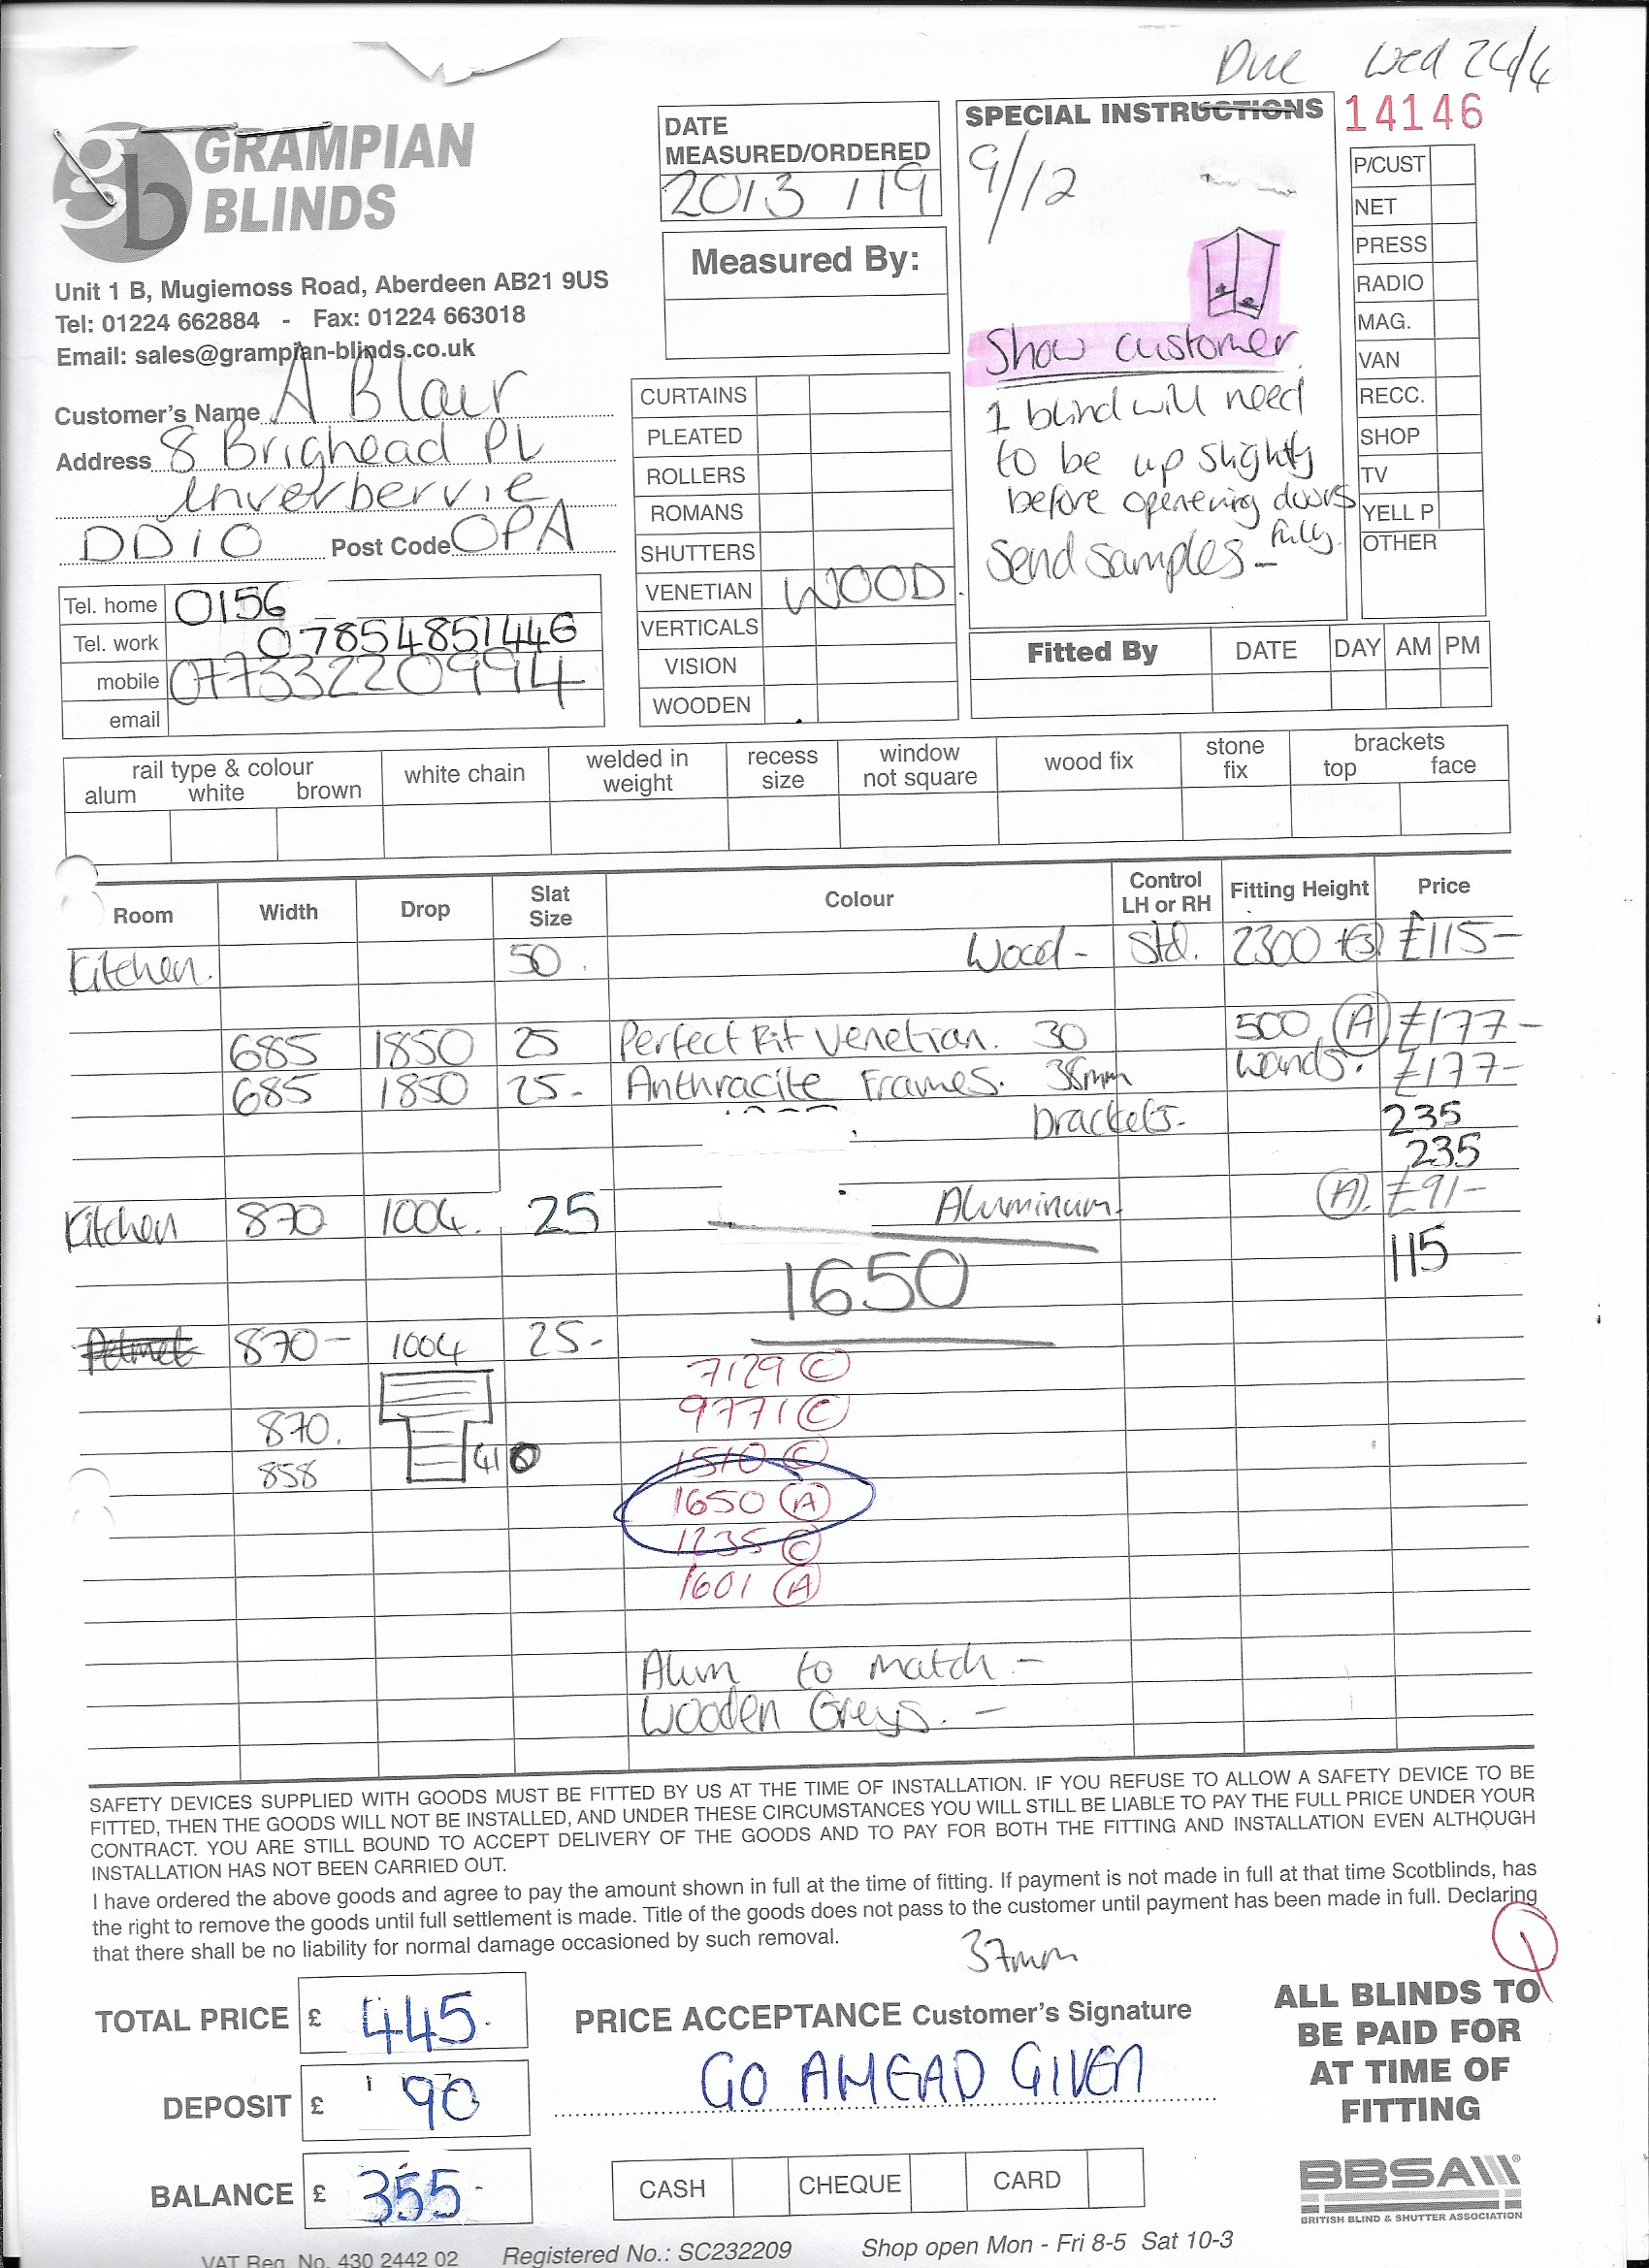 Due Wed 24/4
GRAMPIAN
BLINDS
Unit 1 B, Mugiemoss Road, Aberdeen AB21 9US
Tel: 01224 662884 - Fax: 01224 663018
Email: sales@grampian-blinds.co.uk
Customer's Name A Blair
Address 8 Brighead PL
Inverbervie
DD10 Post Code OPA
Tel. home 0156
Tel. work 07854851446
mobile 07733220994
email
DATE
MEASURED/ORDERED
2013 119
Measured By:
CURTAINS
PLEATED
ROLLERS
ROMANS
SHUTTERS
VENETIAN WOOD
VERTICALS
VISION
WOODEN
SPECIAL INSTRUCTIONS
9/12
Show customer
1 blind will need
to be up slightly
before openering doors
fully.
Send samples -
14146
P/CUST
NET
PRESS
RADIO
MAG.
VAN
RECC.
SHOP
TV
YELL P
OTHER
Fitted By DATE DAY AM PM
rail type & colour
alum white brown
white chain
welded in
weight
recess
size
window
not square
wood fix
stone
fix
brackets
top face
Room Width Drop Slat Size Colour Control LH or RH Fitting Height Price
Kitchen. 50. Wood - Std. 2300 £115-
685 1850 25 Perfect Fit Venetian. 30 500 (A) £177-
685 1850 25- Anthracite Frames. 38mm wands. £177-
brackets. 235
235
Kitchen 870 1004. 25 Aluminum. (A). £91-
115
1650
870- 1004 25-
7129 (C)
870. 9771 (C)
410 1510 (C)
858 1650 (A)
1235 (C)
1601 (A)
Alum to match -
Wooden Greys. -
SAFETY DEVICES SUPPLIED WITH GOODS MUST BE FITTED BY US AT THE TIME OF INSTALLATION. IF YOU REFUSE TO ALLOW A SAFETY DEVICE TO BE
FITTED, THEN THE GOODS WILL NOT BE INSTALLED, AND UNDER THESE CIRCUMSTANCES YOU WILL STILL BE LIABLE TO PAY THE FULL PRICE UNDER YOUR
CONTRACT. YOU ARE STILL BOUND TO ACCEPT DELIVERY OF THE GOODS AND TO PAY FOR BOTH THE FITTING AND INSTALLATION EVEN ALTHOUGH
INSTALLATION HAS NOT BEEN CARRIED OUT.
I have ordered the above goods and agree to pay the amount shown in full at the time of fitting. If payment is not made in full at that time Scotblinds, has
the right to remove the goods until full settlement is made. Title of the goods does not pass to the customer until payment has been made in full. Declaring
that there shall be no liability for normal damage occasioned by such removal.
37mm
TOTAL PRICE £ 445.
DEPOSIT £ 90
BALANCE £ 355-
PRICE ACCEPTANCE Customer's Signature
GO AHEAD GIVEN
CASH CHEQUE CARD
ALL BLINDS TO
BE PAID FOR
AT TIME OF
FITTING
BBSA
BRITISH BLIND & SHUTTER ASSOCIATION
VAT Reg. No. 430 2442 02 Registered No.: SC232209 Shop open Mon - Fri 8-5 Sat 10-3